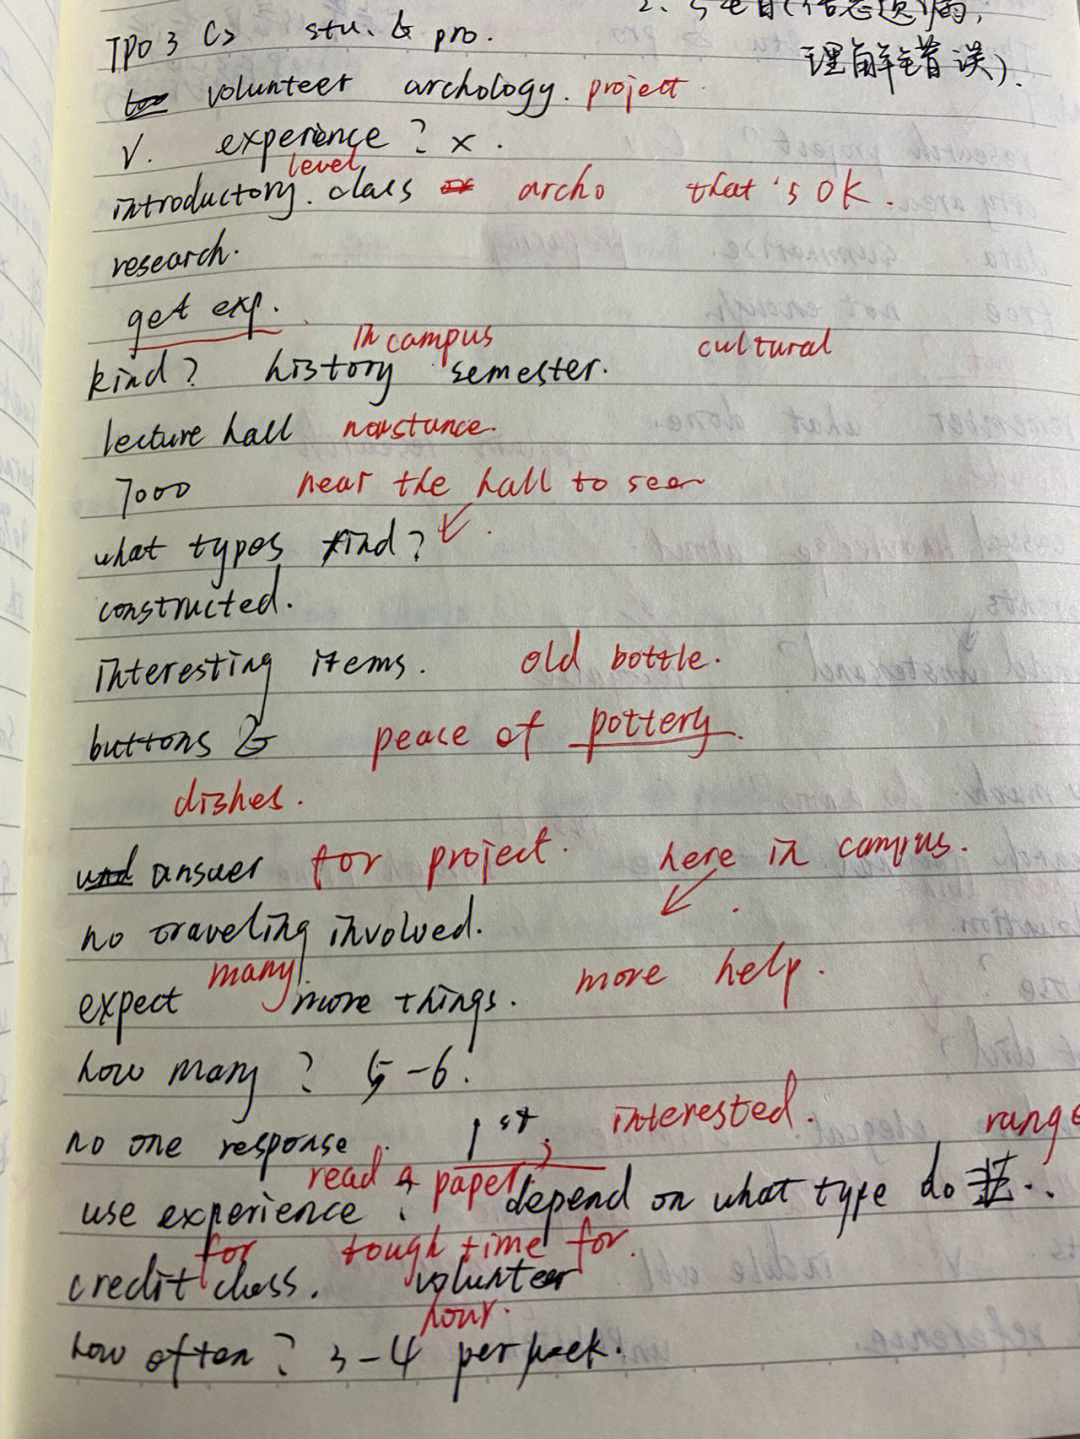 2、与笔者(信息遗漏,
理解错误).
TPO 3 C2 stu. & pro.
volunteer archology. project
V. experience? x.
level
introductory. class archo that's OK.
research.
get exp.
in campus cultural
kind? history semester.
lecture hall
7000 near the hall to see
what types find?
constructed.
interesting items. old bottle.
buttons & peace of pottery.
dishes.
answer for project. here in campus.
no traveling involved.
many more help.
expect more things.
how many? 5-6.
no one response. 1st, interested. range
read a paper,
use experience. depend on what type do
for tough time for.
credit class. volunteer
hour.
how often? 3-4 per week.